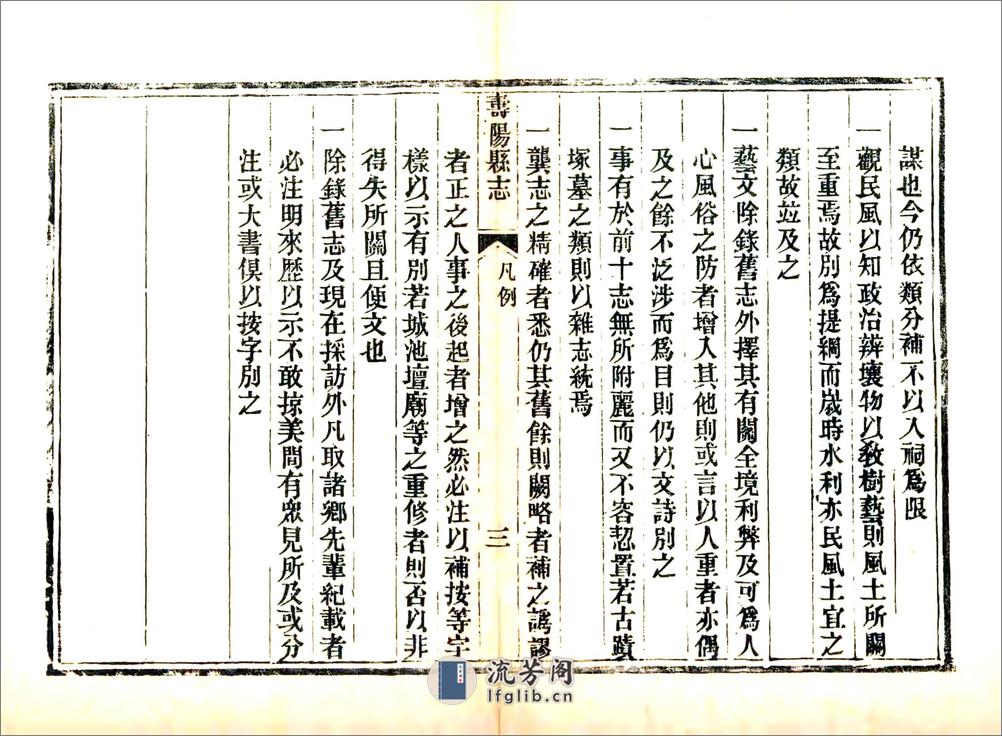 謀也今仍依類分補不以入祠爲限
一觀民風以知政治辨壤物以敎樹藝則風土所關
至重焉故別爲提綱而歲時水利亦民風土宜之
類故竝及之
一藝文除錄舊志外擇其有關全境利弊及可爲人
心風俗之防者增入其他則或言以人重者亦偶
及之餘不泛涉而爲目則仍以文詩別之
一事有於前十志無所附麗而又不容恝置若古蹟
塚墓之類則以雜志統焉
壽陽縣志
凡例
三
一龔志之精確者悉仍其舊餘則闕略者補之譌謬
者正之人事之後起者增之然必注以補按等字
樣以示有別若城池壇廟等之重修者則否以非
得失所關且便文也
一除錄舊志及現在採訪外凡取諸鄉先輩紀載者
必注明來歷以示不敢掠美間有眾見所及或分
注或大書俱以按字別之
流芳阁
lfglib.cn